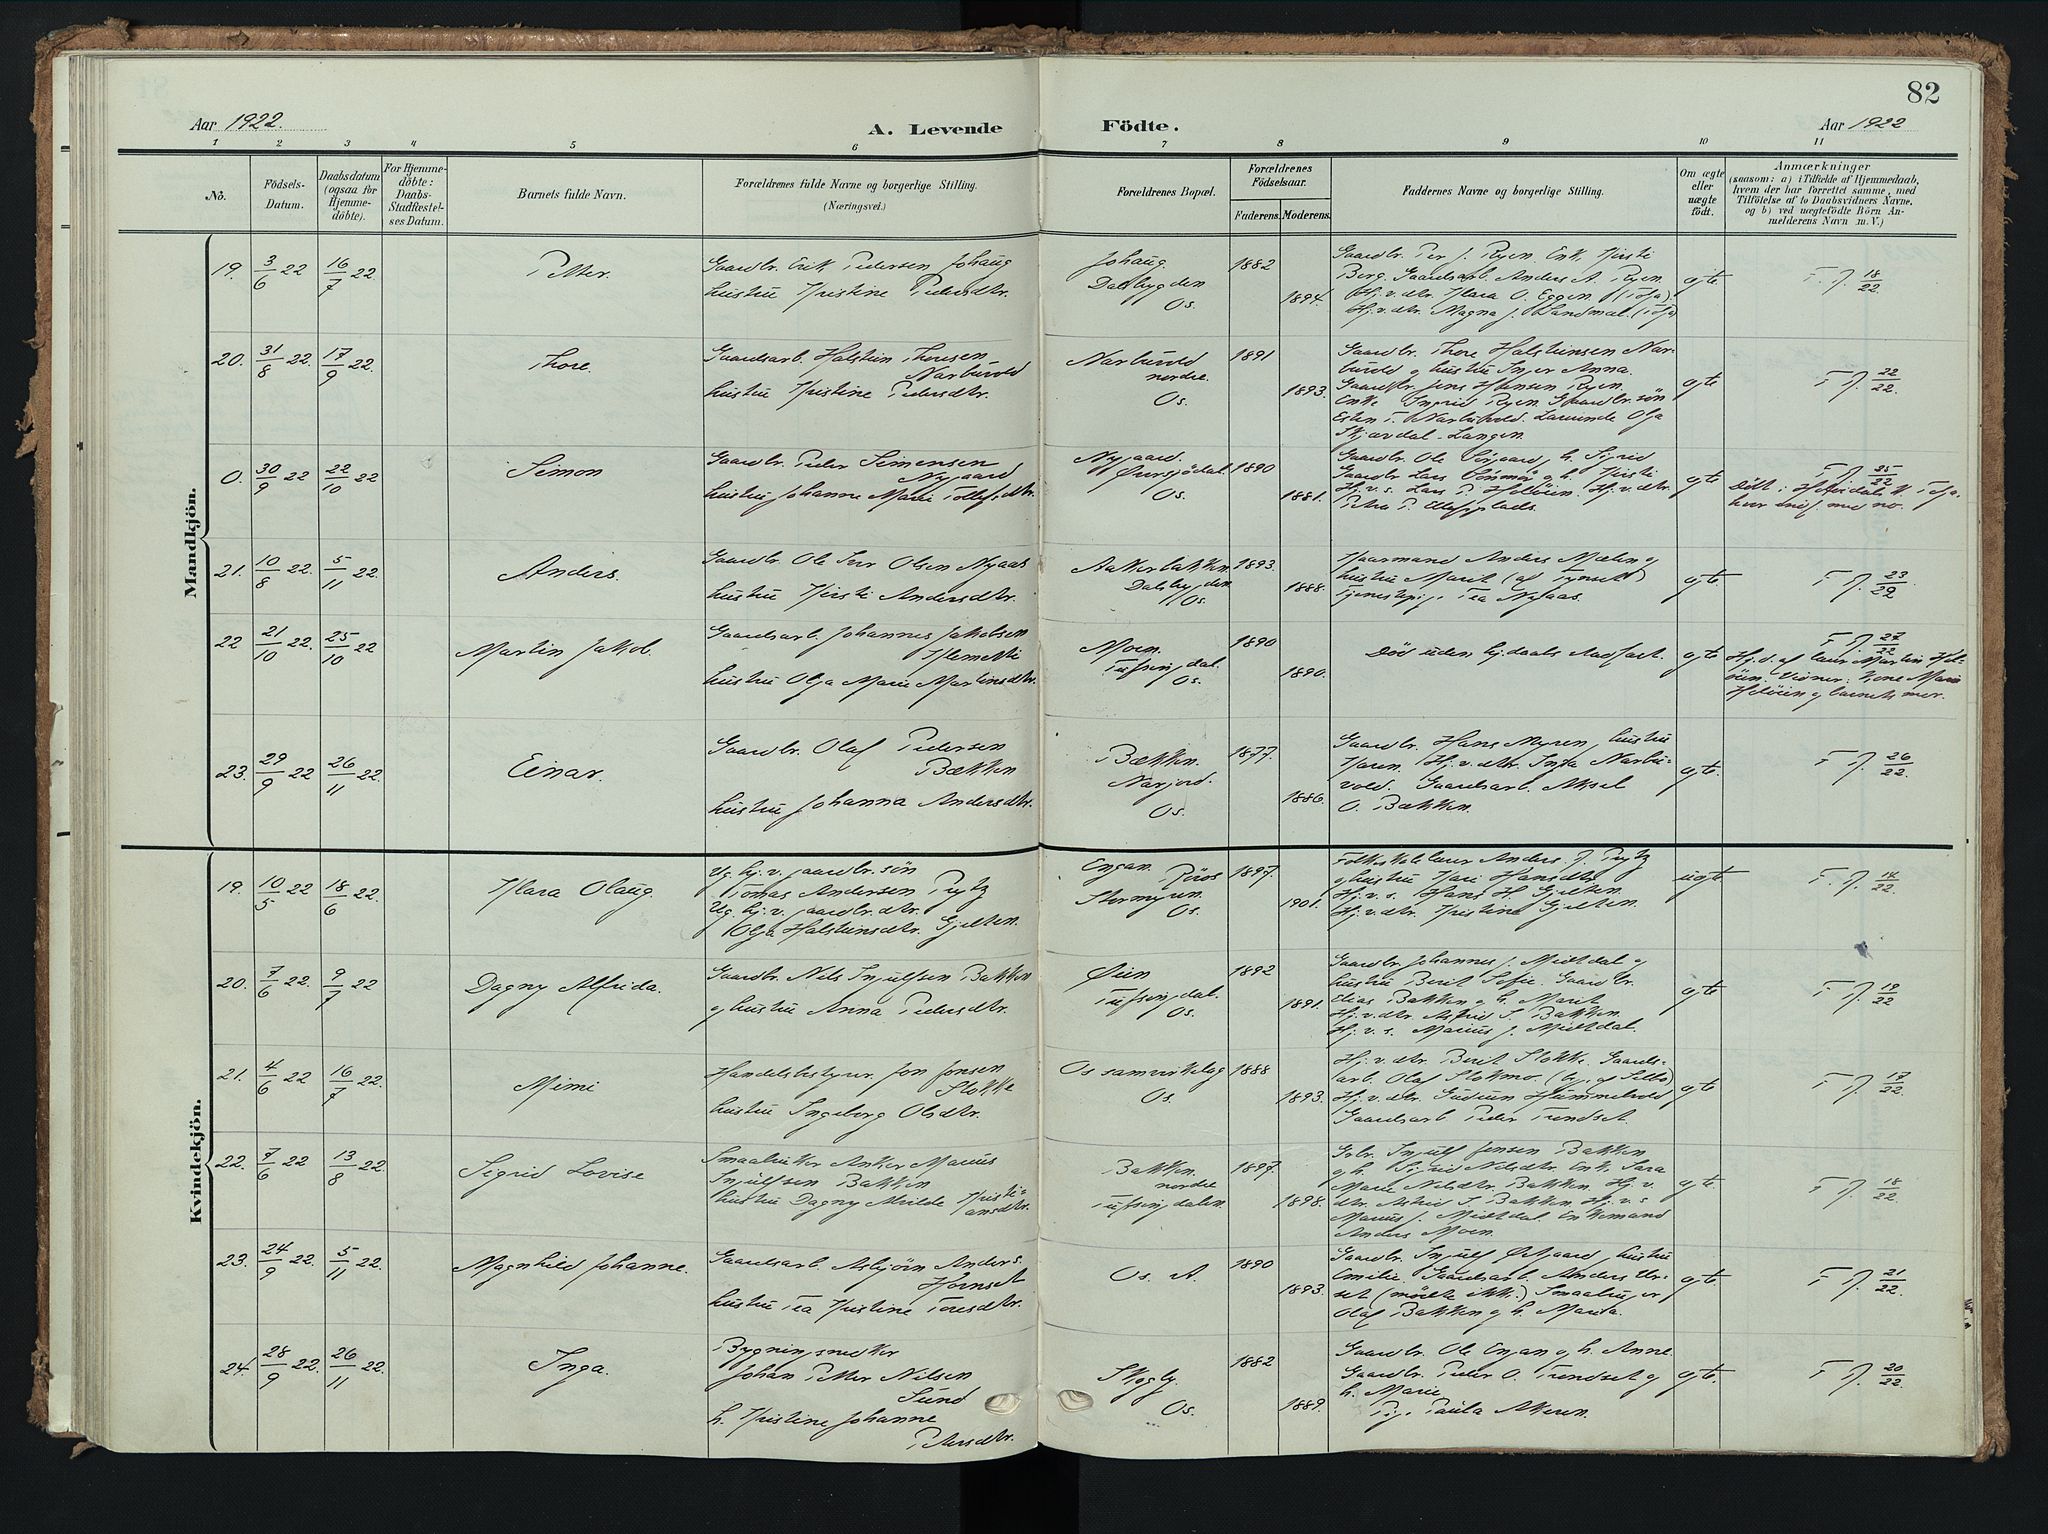 82
Aar 1922.
A. Levende
Födte.
Aar 1922
1 2 3 4 5 6 7 8 9 10 11
No.
Födsels-
Datum.
Daabsdatum
(ogsaa for
Hjemme-
döbte).
For Hjemme-
döbte:
Daabs-
Stadfæstel-
ses Datum.
Barnets fulde Navn.
Forældrenes fulde Navne og borgerlige Stilling.
(Næringsvei.)
Forældrenes Bopæl.
Forældrenes
Födselsaar.
Faderens.
Moderens.
Faddernes Navne og borgerlige Stilling.
Om ægte
eller
uægte
födt.
Anmærkninger
(saasom: a) i Tilfælde af Hjemmedaab,
hvem der har forrettet samme, med
Tilföielse af to Daabsvidners Navne.
og b) ved uægtefödte Börn An-
melderens Navn m. V.)
Mandkjön.
19. 3/6 22 16/7 22 Petter.
Gaardbr. Erik Pedersen Johaug
hustru Kristine Pedersdtr.
Johaug.
Dalsbygden
Os.
1882
1894.
Gaardbr. Per J. Ryen. Enk. Kirsti
Berg. Gaardsarb. Anders A. Ryen.
Hj.v.dtr. Klara O. Eggen (Tolga).
Hj.v.dtr. Magna J. Sandmæl. (Tolga)
egte
F. J. 18/22.
20. 31/8 22. 17/9 22. Thore.
Gaardsarb. Halstein Thoresen
Narbuvold
hustru Kristine Pedersdtr.
Narbuvold
nordre.
Os.
1891
1893.
Gaardbr. Thore Halsteinsen Nar-
buvold og hustru Inger Anna.
Gaardbr. Jens Hansen Ryen.
Enke Ingrid Ryen. Gaardbr. sön
Esten T. Narbuvold. Lærerinde Olga
Skjærdal-Langen.
egte
F J. 22/22.
0. 30/9 22 22/10 22 Simon
Gaardbr. Peder Simensen
Nygaard
hustru Johanne Marie Tollefsdtr.
Nygaard.
Översjödal.
Os.
1890
1881.
egte
F J. 25/22
Döbt i Holöidals K. Tolga.
hvor indf. med no.
21. 10/8 22. 5/11 22. Anders.
Gaardbr. Ole Iver Olsen Nyaas
hustru Kirsti Andersdtr.
Aakerbakken
Dalsbygden
Os.
1893.
1888.
hustru Marit (af Tynset)
Tjenestepige Tea Nyaas.
egte.
F J. 23/22
22 21/10 22. 25/10 22 Martin Jakob.
Gaardsarb. Johannes Jakobsen
Klemetti
hustru Olga Marie Martinsdtr.
Moen.
Tufsingdal.
Os.
1890
1890.
Död uden hj.daabs stadfæst.
egte
F J. 27/22
Hj.d. af lærer Martin Hol-
öien. Vidner: Kone Marie
Holöien og barnets mor.
23. 29/9 22 26/11 22. Einar.
Gaardbr. Olaf Pedersen
Bækken
hustru Johanna Andersdtr.
Bækken.
Narjord.
Os.
1877.
1886.
Gaardbr. Hans Myren, hustru
Karen. Hj.v.dtr. Inga Narbu-
vold. Gaardsarb. Aksel
O. Bækken.
egte.
F J. 26/22.
Kvindekjön.
19. 10/5 22 18/6 22. Klara Olaug.
Ug. hj.v. gaardbr.sön
Tomas Andersen Prytz
Ug. hj.v. gaardbr.dtr.
Olga Halsteinsdtr. Gjelten.
Engan. Röros
Stormyren.
Os.
1897.
1901.
Folkeskolelærer Anders J. Prytz
og hustru Kari Hansdtr.
Hj.v.s. Hans H. Gjelten.
Hj.v.dtr. Kristine Gjelten.
uegte.
F. J. 14/22.
20. 7/6 22. 9/7 22 Dagny Alfrida.
Gaardbr. Nils Ingulfsen Bakken
og hustru Anna Pedersdtr.
Öien
Tufsingdal.
Os.
1892
1891.
Gaardbr. Johannes J. Midtdal og
hustru Berit Sofie. Gaardbr.
Elias Bakken og h. Marit.
Hj.v.dtr. Astrid I. Bakken.
Hj.v.s. Marius J. Midtdal.
egte
F J. 19/22
21. 4/6 22 16/7 22. Mimi
Handelsbestyrer Jon Jonsen
Stokke
hustru Ingeborg Olsdtr.
Os samvirkelag
Os.
1888
1893.
Hj.v.dtr. Berit Stokke. Gaards-
arb. Olaf Stokmo. (begge af Selbu)
Hj.v.dtr. Gudrun Hummelvold
Gaardsarb. Peder Trondset.
egte
F J. 17/22.
22. 7/6 22 13/8 22. Sigrid Lovise
Smaabruker Anker Marius
Ingulfsen Bakken
hustru Dagny Alvilde Kristi-
ansdtr.
Bakken.
nordre
Tufsingdalen.
1897.
1898.
Gbr. Ingulf Jensen Bakken
og h. Sigrid Nilsdtr. Enk. Sara
Marie Nilsdtr. Bakken. Hj.v.
dtr. Astrid I. Bakken. Hj.v.s
Marius J. Midtdal. Enkemand
Anders Moen.
egte
F J. 18/22.
23. 24/9 22. 5/11 22. Magnhild Johanne.
Gaardsarb. Asbjörn Anders.
Hornset
hustru Tea Kristine Toresdtr.
Os. A.
1890
1893.
Gaardbr. Ingulf Ödegaard, hustru
Emilie. Gaardsarb. Anders Ur-
set (mödte ikke.) Smaabruger
Olaf Bakken og h. Marta.
egte.
F J. 21/22.
24. 28/9 22. 26/11 22. Inga.
Bygningssnedker
Johan Petter Nilsen
Sund
h. Kristine Johanne
Petersdtr.
Skogly.
Os.
1882
1889.
Gaardbr. Ole Engan og h. Anne.
Gaardbr. Peder O. Trondset og
h. Marie
Pige Paula Akeren.
egte.
F J. 20/22.